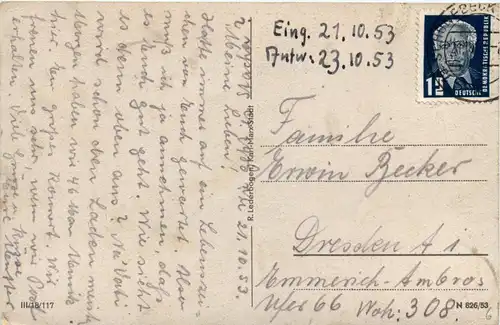 Eing. 21.10.53
Antw. 23.10.53
DEUTSCHE
DEMOKRATISCHE REPUBLIK
Familie
Erwin Becker
Dresden A 1
Emmerich-Ambros
Ufer 66 Woh: 308.
N 826/53
R. Lederbogen, Halberstadt
III/18/117
21.10.53.
Meine Lieben!
Hatte immer auf ein Lebenszei-
chen von Euch gewartet. Nun
muß ich ja annehmen daß
es Euch gut geht. Wie sieht
es denn oben aus? Na Vati
wird schon den Laden
Morgen haben wir
hier ein großes Konzert. Wir
freuen uns sehr, wenn wir Post
erhalten. Viele Grüße